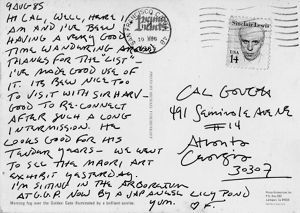 9 AUG 85
HI CAL, WELL, HERE I
AM AND I'VE BEEN
HAVING A VERY GOOD
TIME WANDERING AROUND
THANKS FOR THE "LIST"
I'VE MADE GOOD USE OF
IT. ITS BEEN NICE TOO
TO VISIT WITH SIR HARV-
GOOD TO RE-CONNECT
AFTER SUCH A LONG
INTERMISSION. HE
LOOKS GOOD FOR HIS
TENDER YEARS - WE WENT
TO SEE THE MAORI ART
EXHIBIT YESTERDAY.
I'M SITTING IN THE ARBORETUM
AT G.G.P. NOW BY A JAPANESE LILY POND
YUM.
Sinclair Lewis
USA
14
CAL GOUGH
491 Seminole Ave NE
#14
Atlanta
Georgia
30307
Morning fog over the Golden Gate illuminated by a brilliant sunrise.